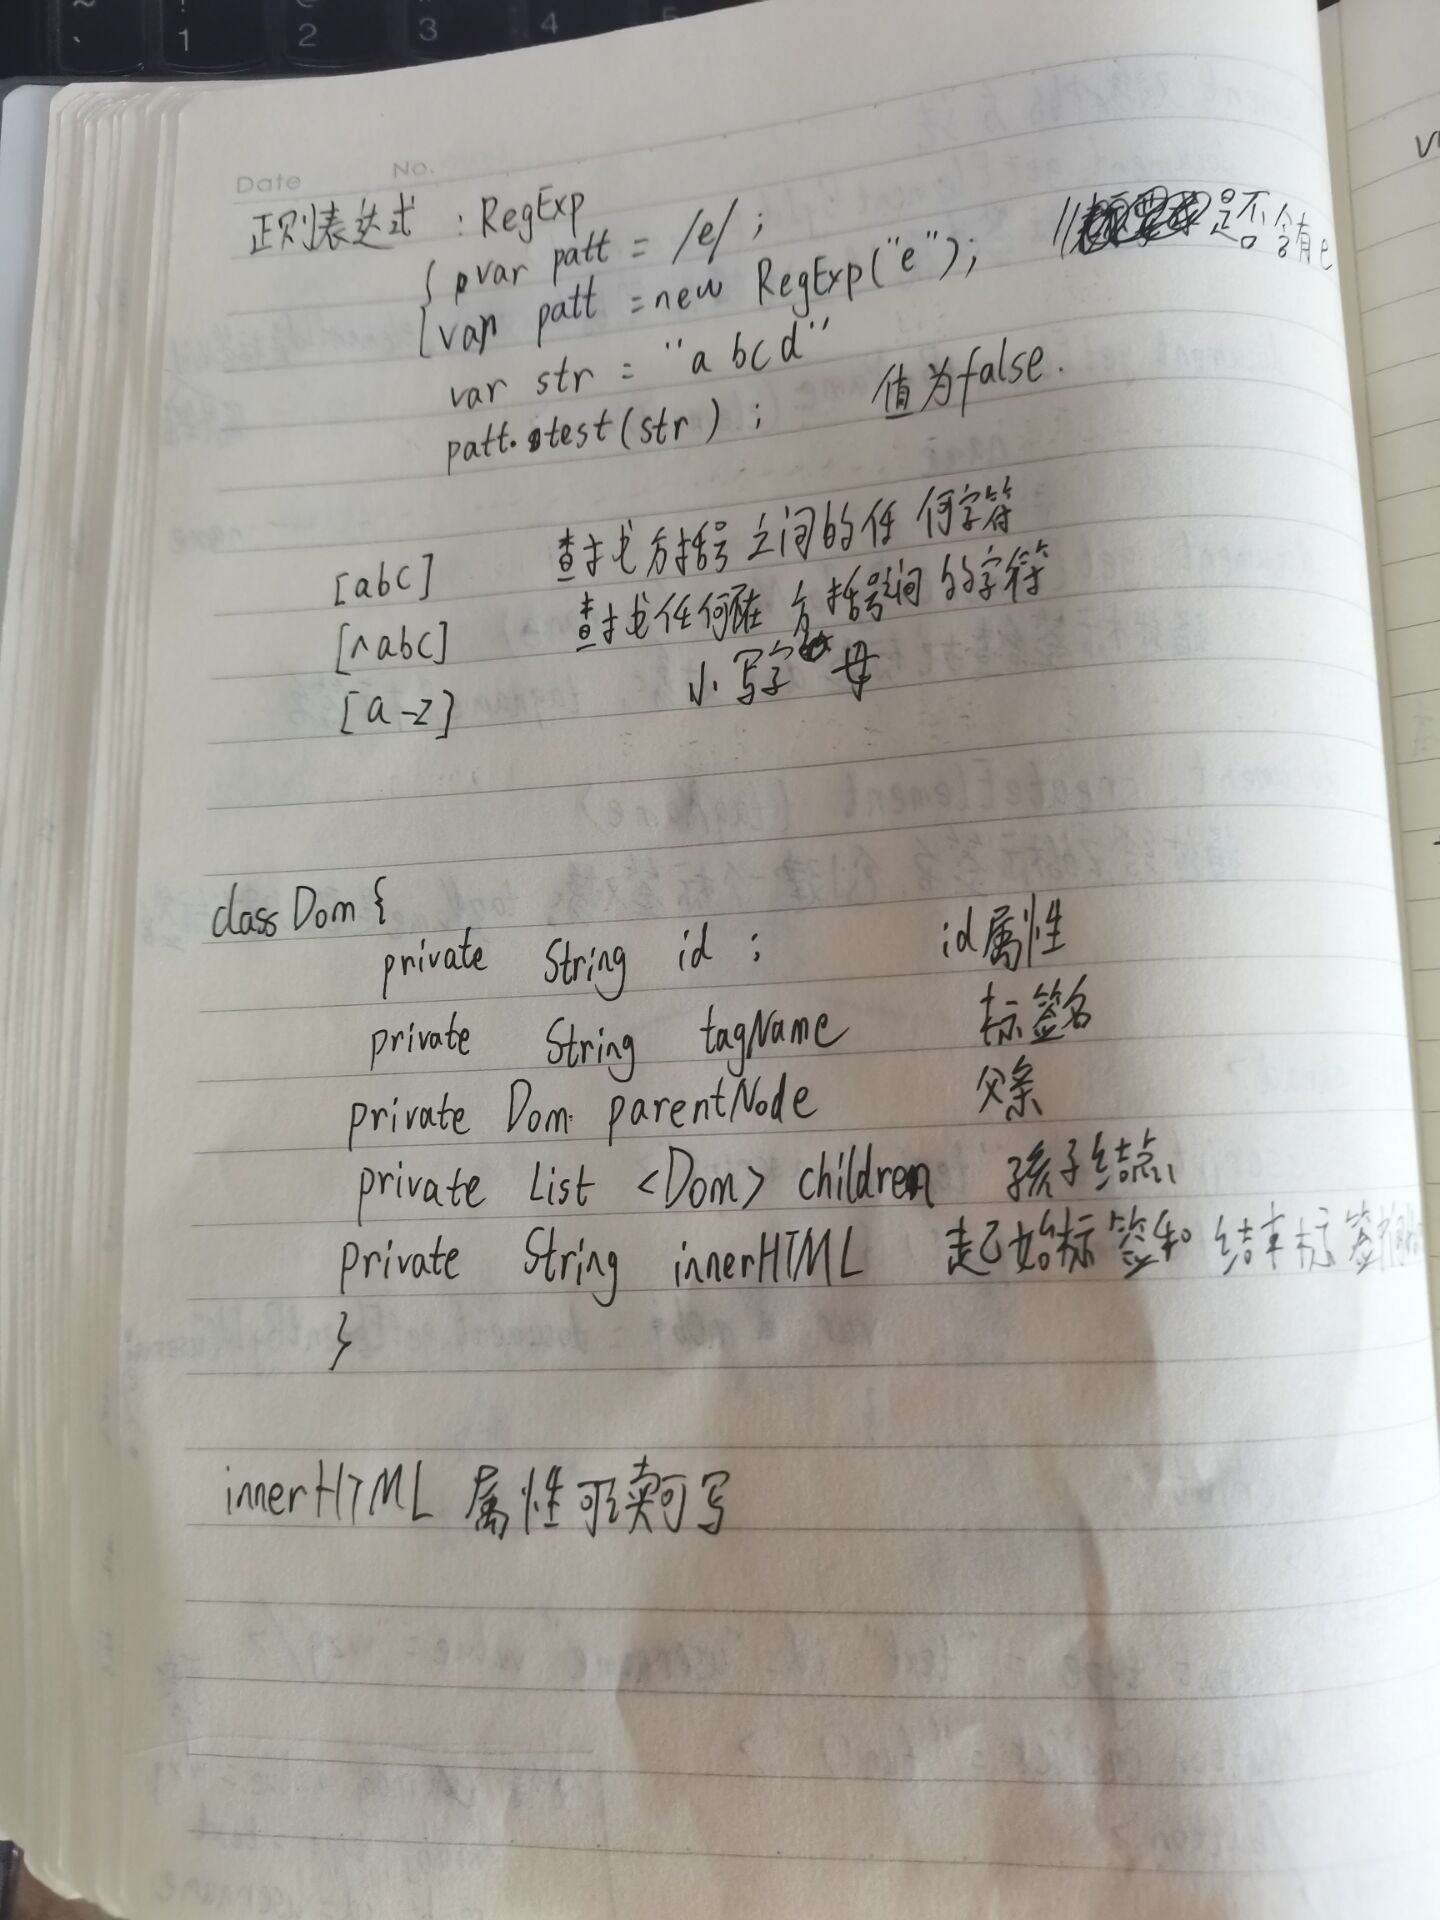 Date No.
正则表达式 : RegExp
{ var patt = /e/ ;
var patt = new RegExp("e"); // 是否含有e
var str = "abcd"
patt.test(str) ; 值为false.
[abc] 查找方括号之间的任何字符
[^abc] 查找任何不在方括号之间的字符
[a-z] 小写字母
class Dom {
private String id ; id属性
private String tagName 标签名
private Dom parentNode 父亲
private List <Dom> children 孩子结点
private String innerHTML 起始标签和结束标签
}
innerHTML 属性可读可写